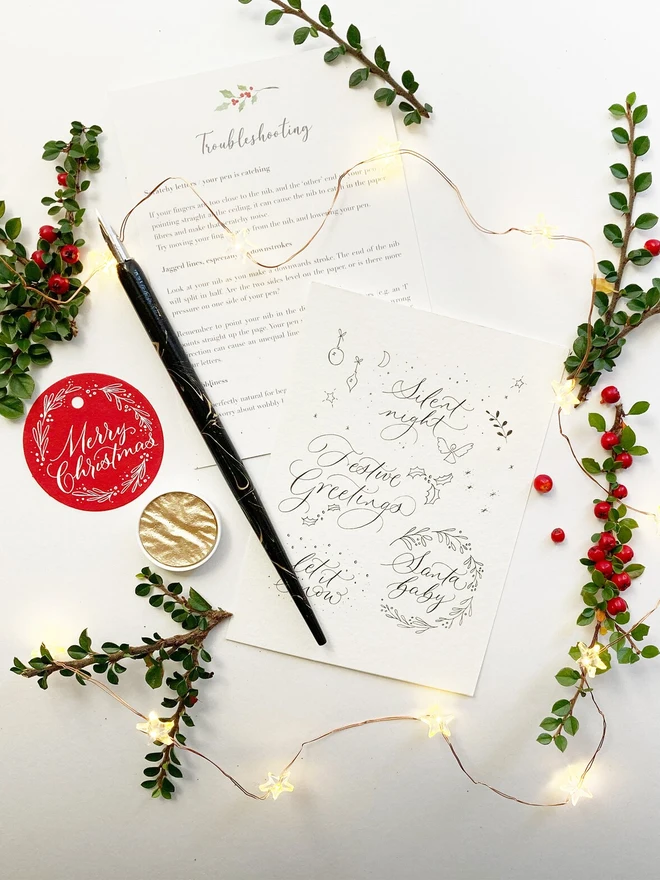 Troubleshooting
your pen is catching
If your fingers are too close to the nib, and the 'other' end of your pen
pointing straight at the ceiling, it can cause the nib to catch in the paper
fibres and make that scratchy noise.
Try moving your fingers from the nib, and lowering your pen.
Jagged lines, especially downstrokes
Look at your nib as you make a downwards stroke. The end of the nib
will split in half. Are the two sides level on the paper, or is there more
pressure on one side of your pen?
Remember to point your nib in the
points straight up the page. Your pen
direction can cause an unequal
lines.
perfectly natural for
worry about wobbly
Merry
Christmas
Silent
night
Festive
Greetings
let it
snow
Santa
baby